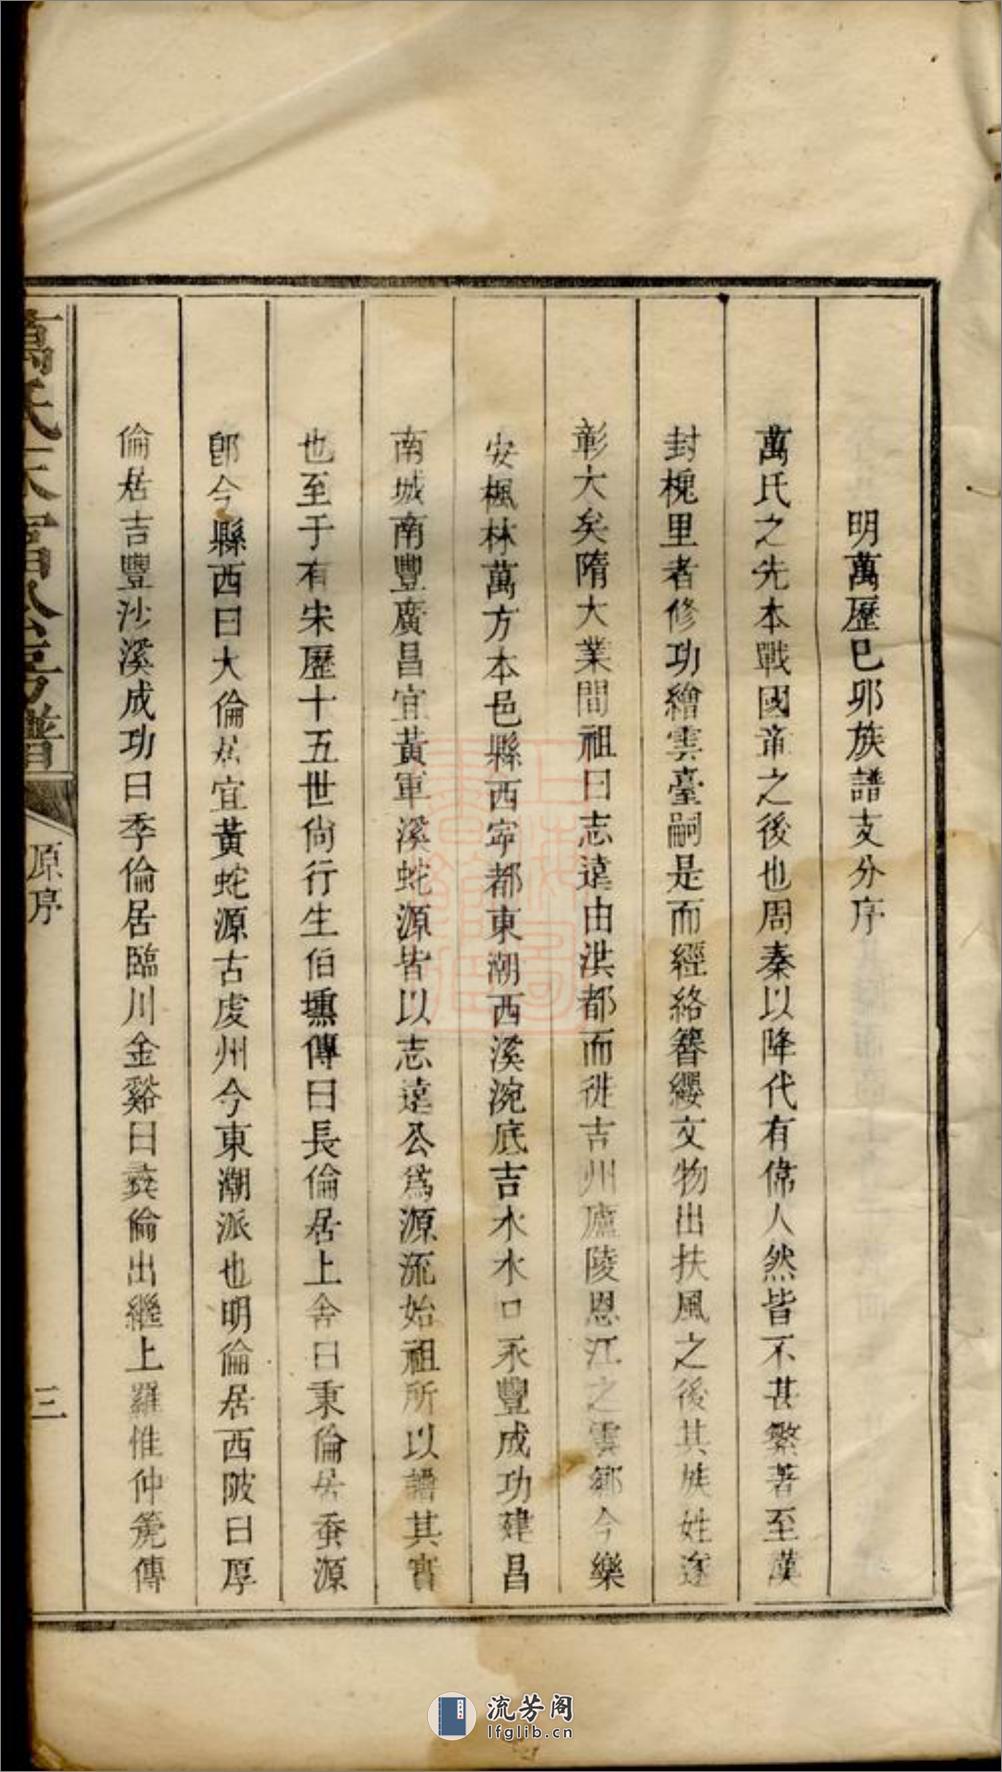 明萬歷己卯族譜支分序
萬氏之先本戰國章之後也周秦以降代有偉人然皆不甚繁著至漢
封槐里者修功繪雲臺嗣是而經絡簪纓文物出扶風之後其族姓逐
彰大矣隋大業間祖曰志遠由洪都而徙吉州廬陵恩江之雲鄉今樂
安楓林萬方本邑縣西寧都東潮西溪涴底吉水水口永豐成功建昌
南城南豐廣昌宜黃軍溪蛇源皆以志遠公爲源流始祖所以譜其實
也至于有宋歷十五世尙行生伯壎傳曰長倫居上舍曰秉倫居蚕源
卽今縣西曰大倫居宜黃蛇源古虔州今東潮派也明倫居西陂曰厚
倫居吉豐沙溪成功曰季倫居臨川金谿曰彛倫出繼上羅惟仲箎傳
萬氏 富公房譜
原序
三
上海圖書館藏
流芳阁
lfglib.cn